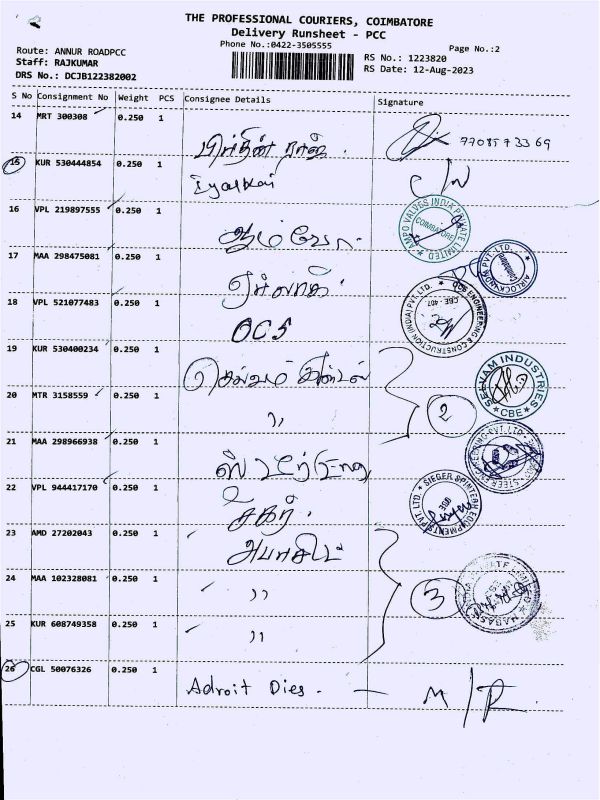 THE PROFESSIONAL COURIERS, COIMBATORE
Delivery Runsheet - PCC
Phone No.:0422-3505555
Page No.:2
Route: ANNUR ROADPCC
RS No.: 1223820
Staff: RAJKUMAR
RS Date: 12-Aug-2023
DRS No.: DCJB122382002
S No Consignment No Weight PCS Consignee Details Signature
14 MRT 300308 0.250 1
7708573369
15 KUR 530444854 0.250 1
C/N
16 VPL 219897555 0.250 1
VALVES INDIA PRIVATE LIMITED
COIMBATORE
17 MAA 298475081 0.250 1
Coimbatore
18 VPL 521077483 0.250 1 OCS
OCS ENGINEERING & CONSTRUCTION (INDIA) PVT. LTD.
CBE - 407
19 KUR 530400234 0.250 1
SELVAM INDUSTRIES
CBE
20 MTR 3158559 0.250 1 〃 2
21 MAA 298966938 0.250 1
STEER ENGINEERING PVT. LTD.
22 VPL 944417170 0.250 1
23 AMD 27202043 0.250 1
24 MAA 102328081 0.250 1 〃 3
25 KUR 608749358 0.250 1 〃
26 CGL 50076326 0.250 1 Adroit Dies. — M/R